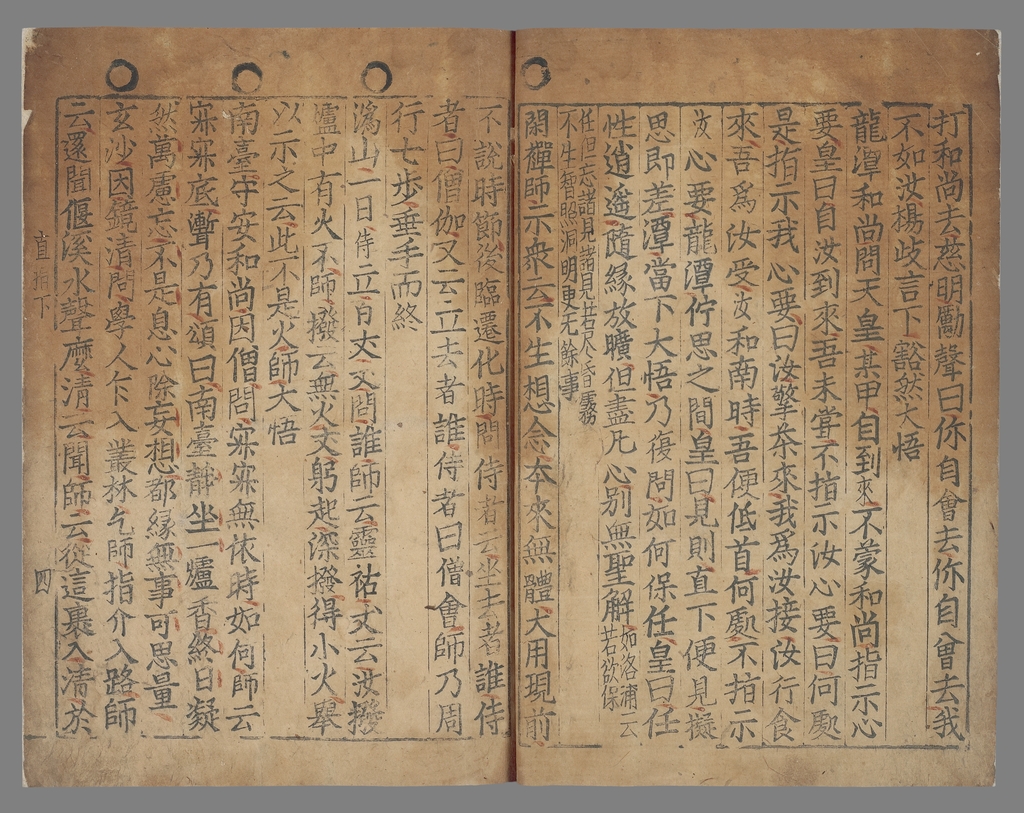 打和尚去慈明勵聲曰你自會去你自會去我
不如汝楊歧言下豁然大悟
龍潭和尚問天皇某甲自到來不蒙和尚指示心
要皇曰自汝到來吾未甞不指示汝心要曰何䖏
是指示我心要曰汝擎茶來我爲汝接汝行食
來吾爲汝受汝和南時吾便低首何䖏不指示
汝心要龍潭佇思之間皇曰見則直下便見擬
思即差潭當下大悟乃復問如何保任皇曰任
性逍遥隨緣放曠但盡凡心別無聖解如洛浦云若欲保
任但忘諸見諸見若尽昏霧不生智照洞明更无餘事
閑禪師示衆云不生想念本來無體大用現前
不說時節後臨遷化時問侍者云坐去者誰侍
者曰僧伽又云立去者誰侍者曰僧會師乃周
行七步垂手而終
溈山一日侍立百丈丈問誰師云靈祐丈云汝撥
爐中有火不師撥云無火丈躬起深撥得小火舉
以示之云此不是火師大悟
南臺守安和尚因僧問㝥㝥無依時如何師云
㝥㝥底聻乃有頌曰南臺靜坐一爐香終日凝
然萬慮忘不是息心除妄想都緣無事可思量
玄沙因鏡清問學人乍入叢林乞師指介入路師
云還聞偃溪水聲麽清云聞師云從這裏入清於
直指下
四